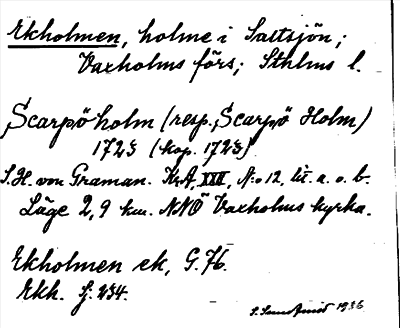 Ekholmen, holme i Saltsjön;
Vaxholms förs; Sthlms l.
Scarpö holm (resp. Scarpö Holm)
1723 (kop. 1723)
S.H. von Graman. KrA, XXII, N:o 12, lit. a. o. b.
Läge 2,9 km. NNÖ Vaxholms kyrka.
Ekholmen ek, G. 76.
Ekh. j. 234.
1936